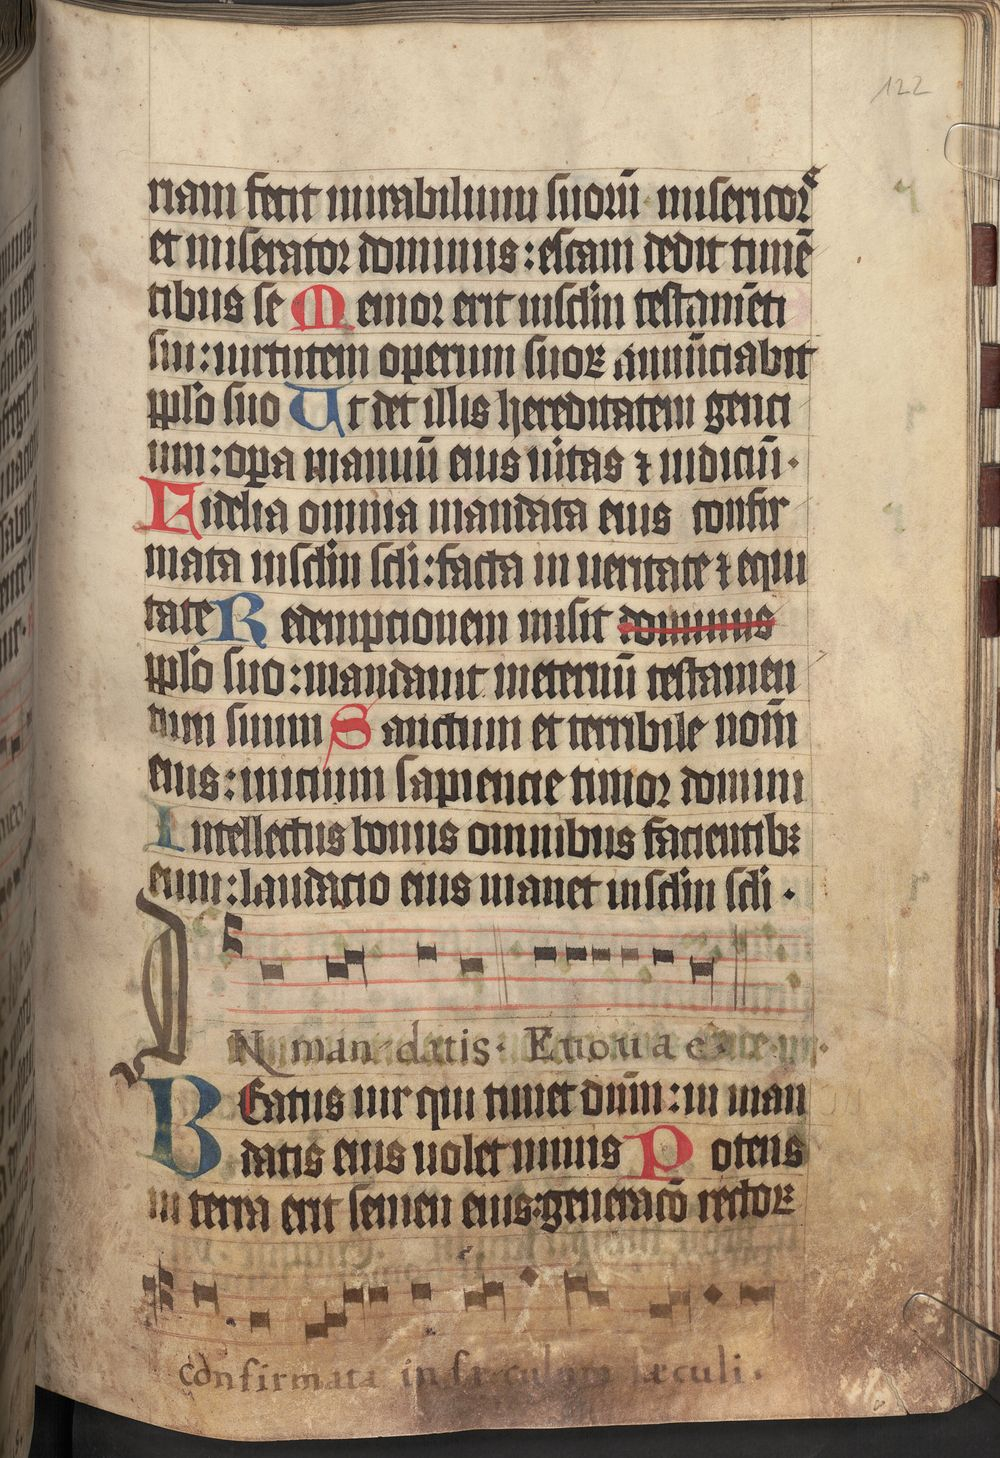 122
riam fecit mirabilium suoru᷈ misericors
et miserator dominus: escam dedit timē
tibus se Memor erit insclm̄ testamēti
sui: uirtutem operum suoꝝ annūciabit
pplo suo Ut det illis hereditatem genci
um: opa manuū eius uitas ⁊ iudiciū.
Fidelia omnia mandata eius confir
mata insclm̄ scli: facta in ueritate ⁊ equi
tate Redempcionem misit dominus
pplo suo: mandauit ineternū testamen
tum suum Sanctum et terribile nom̄
eius: inicium sapiencie timor domini
Intellectus bonus omnibus facientibꝫ
eum: laudacio eius manet insclm̄ scli.
IN mandatis. Euouae
BEatus uir qui timet dnm̄: in man
datis eius uolet nimis Potens
in terra erit semen eius: generacō rectoꝝ
confirmata in sæculum sæculi.